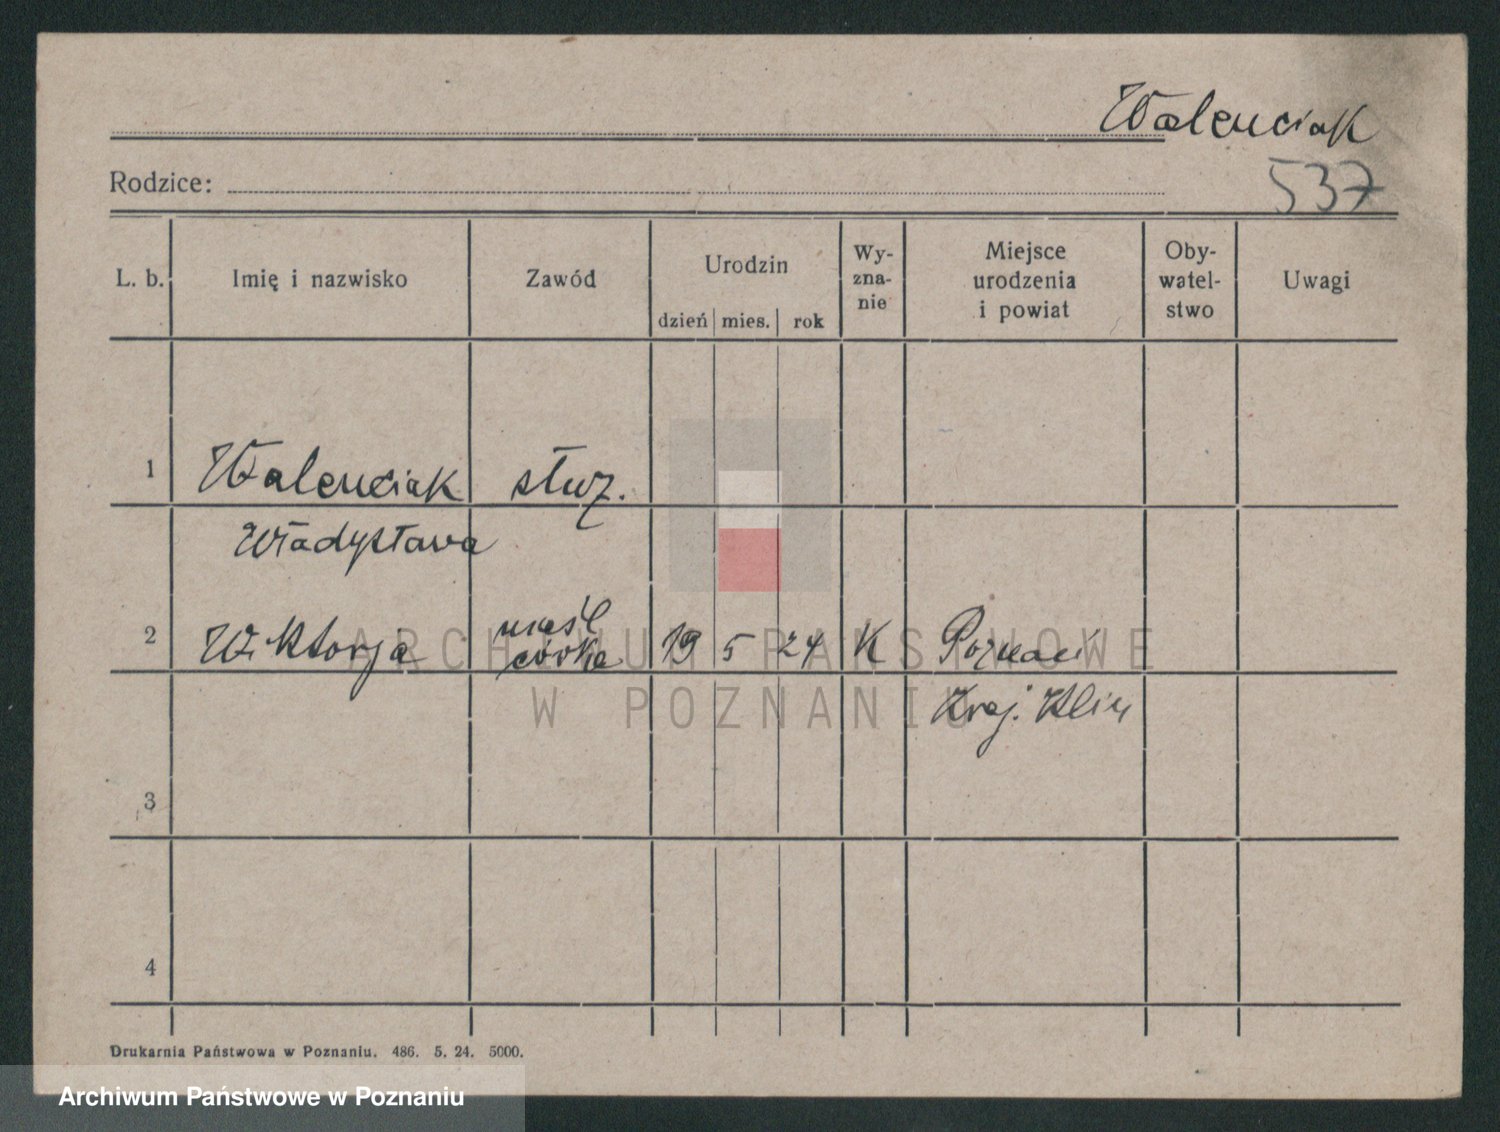 Walenciak
Rodzice:
537
L. b. Imię i nazwisko Zawód Urodzin Wy-zna-nie Miejsce urodzenia i powiat Oby-watel-stwo Uwagi
dzień mies. rok
1 Walenciak służ.
Władysława
2 Wiktorja nieśl córka 19 5 24 K Poznań
Kraj. Klin
3
4
Drukarnia Państwowa w Poznaniu. 486. 5. 24. 5000.
ARCHIWUM PAŃSTWOWE
W POZNANIU
Archiwum Państwowe w Poznaniu